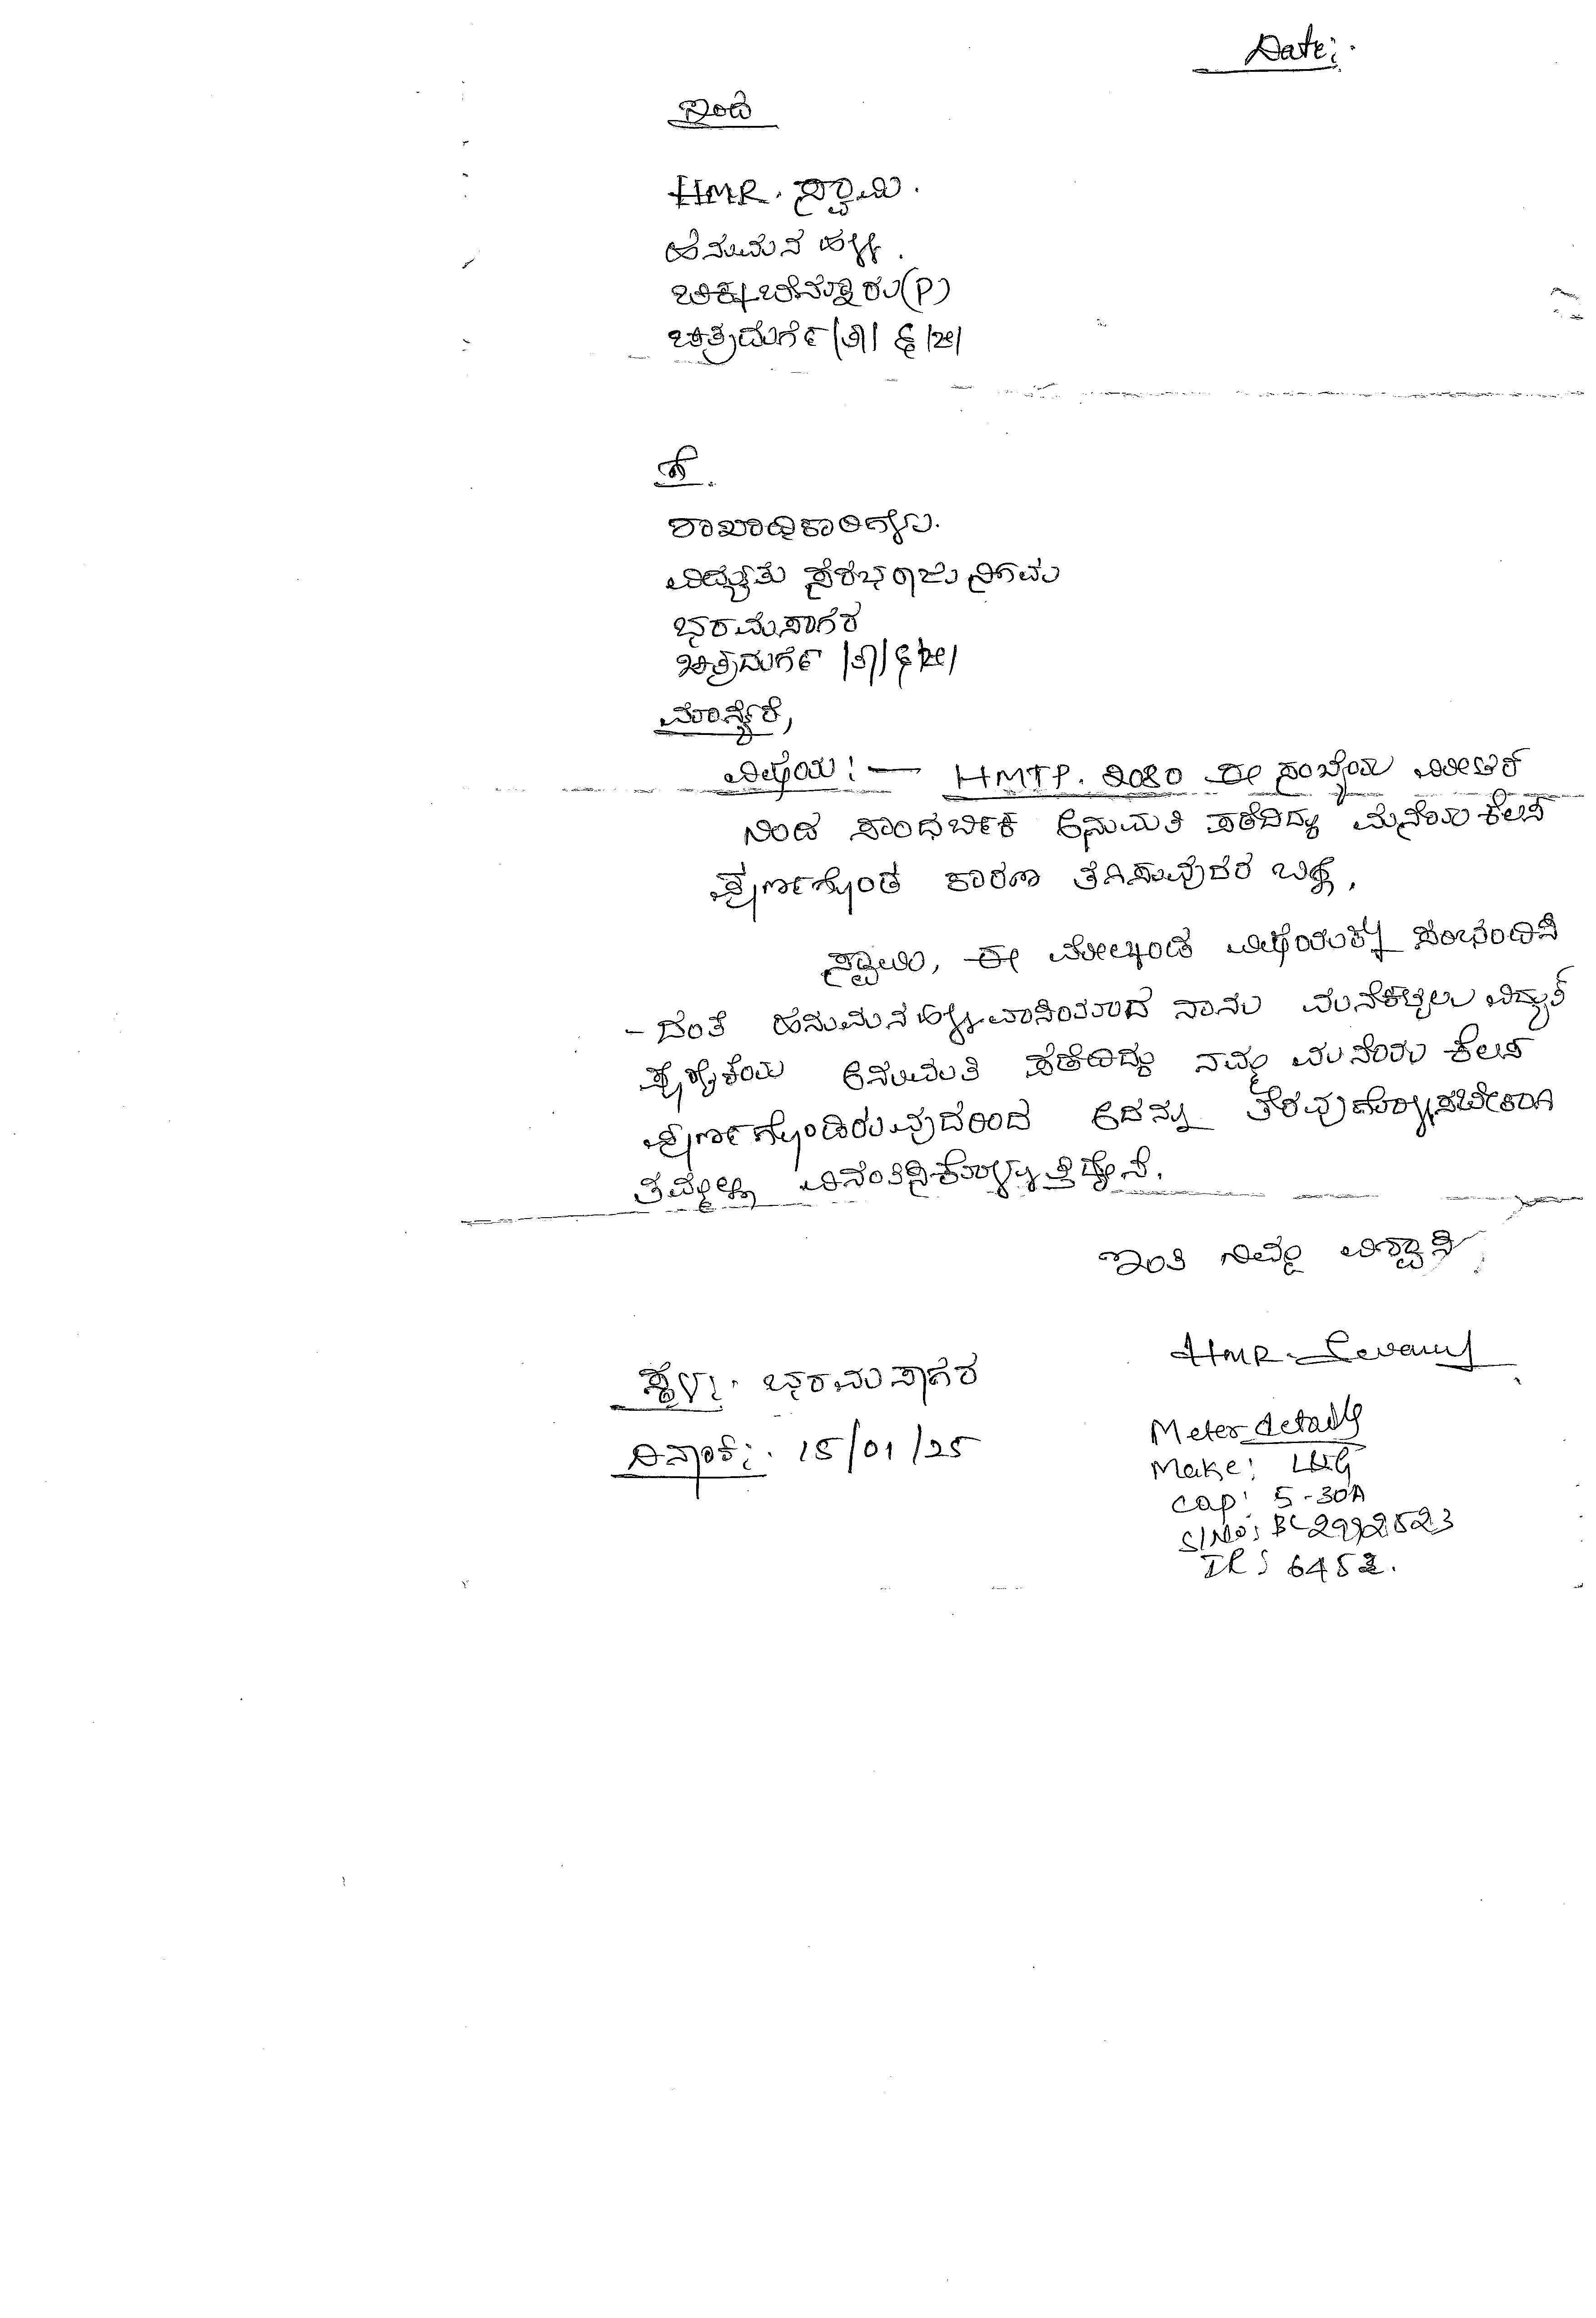 Date:
ಇಂದ
HMR. ಸ್ವಾಮಿ.
ಹನುಮನ ಹಳ್ಳಿ.
(P)
ಚಿತ್ರದುರ್ಗ (ತಾ) & (ಜಿ)
ಗೆ.
ಶಾಖಾಧಿಕಾರಿಗಳು.
ವಿದ್ಯುತ್ ಸರಬರಾಜು ನಿಗಮ
ಭರಮಸಾಗರ
ಚಿತ್ರದುರ್ಗ (ತಾ) & (ಜಿ)
ಮಾನ್ಯರೆ,
ವಿಷಯ :— HMTP. 2080 ಈ ಸಂಖ್ಯೆಯ ಮೀಟರ್
ನಿಂದ ಅನುಮತಿ ಪಡೆದಿದ್ದು ಮನೆಯ ಕೆಲಸ
ಪೂರ್ಣಗೊಂಡ ಕಾರಣ ತೆಗಿಸುವುದರ ಬಗ್ಗೆ.
ಸ್ವಾಮಿ, ಈ ಮೇಲ್ಕಂಡ ವಿಷಯಕ್ಕೆ ಸಂಭಂದಿಸಿ
- ದಂತೆ ಹನುಮನಹಳ್ಳಿ ವಾಸಿಯಾದ ನಾನು ಮನೆಕಟ್ಟಲು ವಿದ್ಯುತ್
ಅನುಮತಿ ಪಡೆದಿದ್ದು ನಮ್ಮ ಮನೆಯ ಕೆಲಸ
ಪೂರ್ಣಗೊಂಡಿರುವುದರಿಂದ ಅದನ್ನು ತೆರವುಗೊಳ್ಳಿಸಬೇಕಾಗಿ
ತಮ್ಮಲ್ಲಿ ವಿನಂತಿಸಿಕೊಳ್ಳುತ್ತಿದ್ದೇನೆ.
ಇಂತಿ ನಿಮ್ಮ ವಿಶ್ವಾಸಿ
HMR. Swamy
ಸ್ಥಳ: ಭರಮಸಾಗರ
ದಿನಾಂಕ: 15/01/25
Meter details
Make: L&G
cap: 5-30A
S/No: BC2992523
IR: 6452.